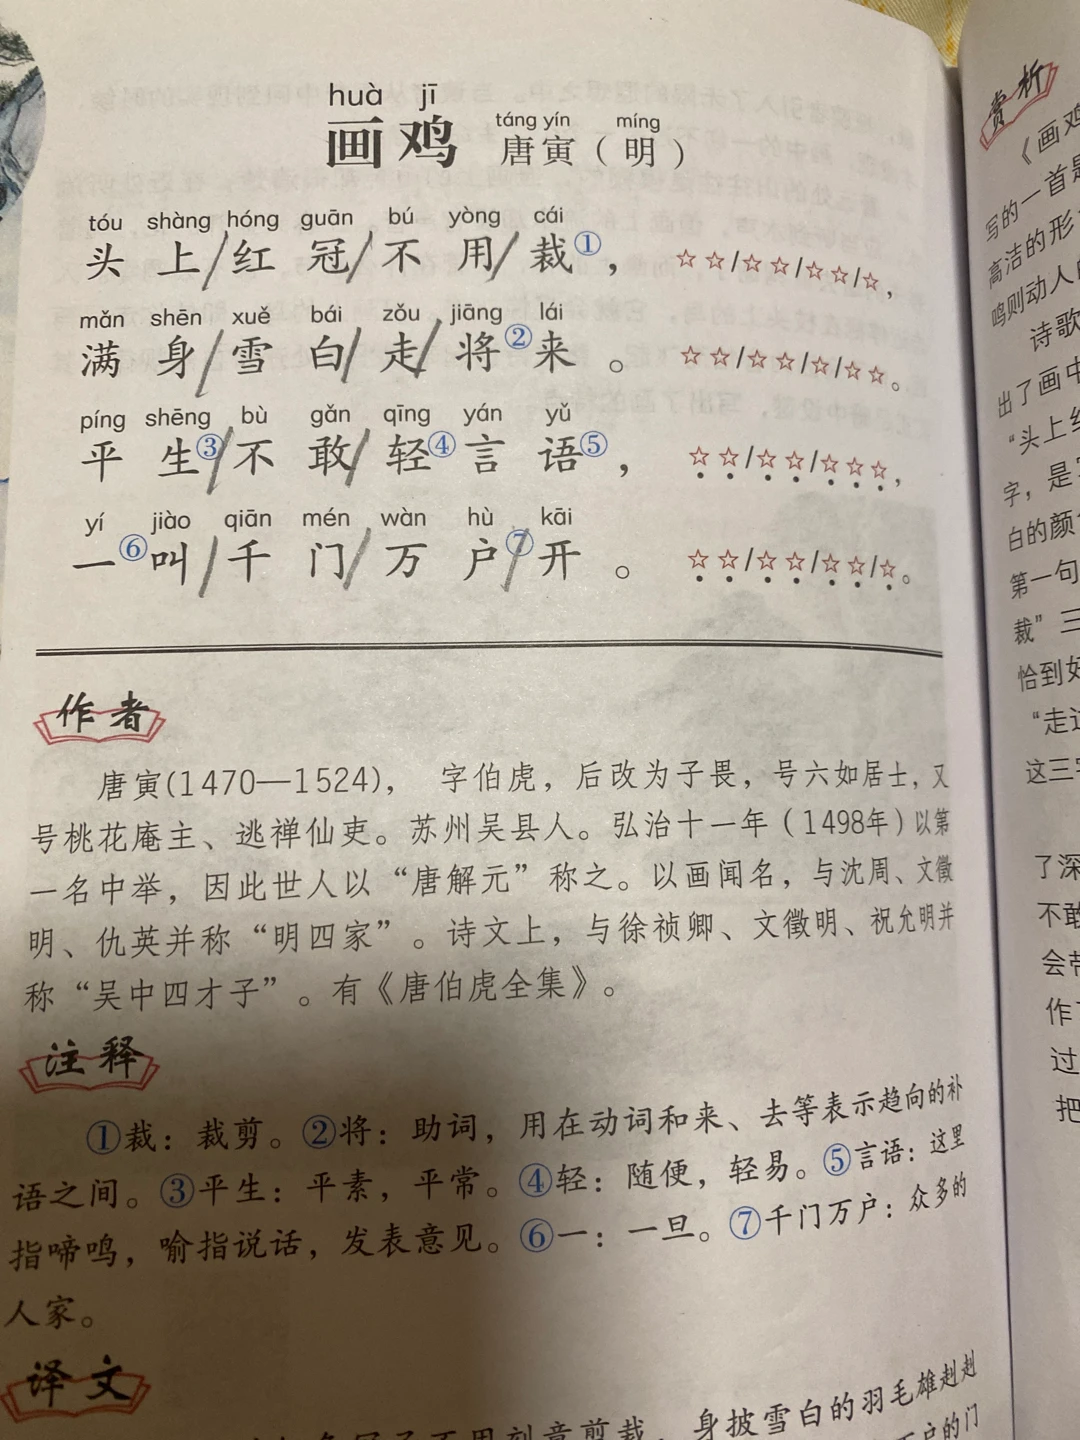 huà jī
画鸡 唐寅（明）
táng yín míng
tóu shàng hóng guān bú yòng cái
头上/红冠/不用/裁①， ☆☆/☆☆/☆☆/☆，
mǎn shēn xuě bái zǒu jiāng lái
满身/雪白/走/将②来。 ☆☆/☆☆/☆/☆☆。
píng shēng bù gǎn qīng yán yǔ
平生③/不敢/轻④言语⑤， ☆☆/☆☆/☆☆☆，
yí jiào qiān mén wàn hù kāi
一⑥叫/千门/万户⑦/开。 ☆☆/☆☆/☆☆/☆。
作者
唐寅(1470—1524)， 字伯虎，后改为子畏，号六如居士，又
号桃花庵主、逃禅仙吏。苏州吴县人。弘治十一年（1498年）以第
一名中举，因此世人以“唐解元”称之。以画闻名，与沈周、文徵
明、仇英并称“明四家”。诗文上，与徐祯卿、文徵明、祝允明并
称“吴中四才子”。有《唐伯虎全集》。
注释
①裁：裁剪。②将：助词，用在动词和来、去等表示趋向的补
语之间。③平生：平素，平常。④轻：随便，轻易。⑤言语：这里
指啼鸣，喻指说话，发表意见。⑥一：一旦。⑦千门万户：众多的
人家。
译文
不用刻意剪裁，身披雪白的羽毛雄赳赳
户的门
赏析
《画鸡
写的一首是
高洁的形
鸣则动人
诗歌
出了画中
“头上红
字，是
白的颜
第一句
裁”三
恰到好
“走
这三
了深
不敢
会带
作
过
把